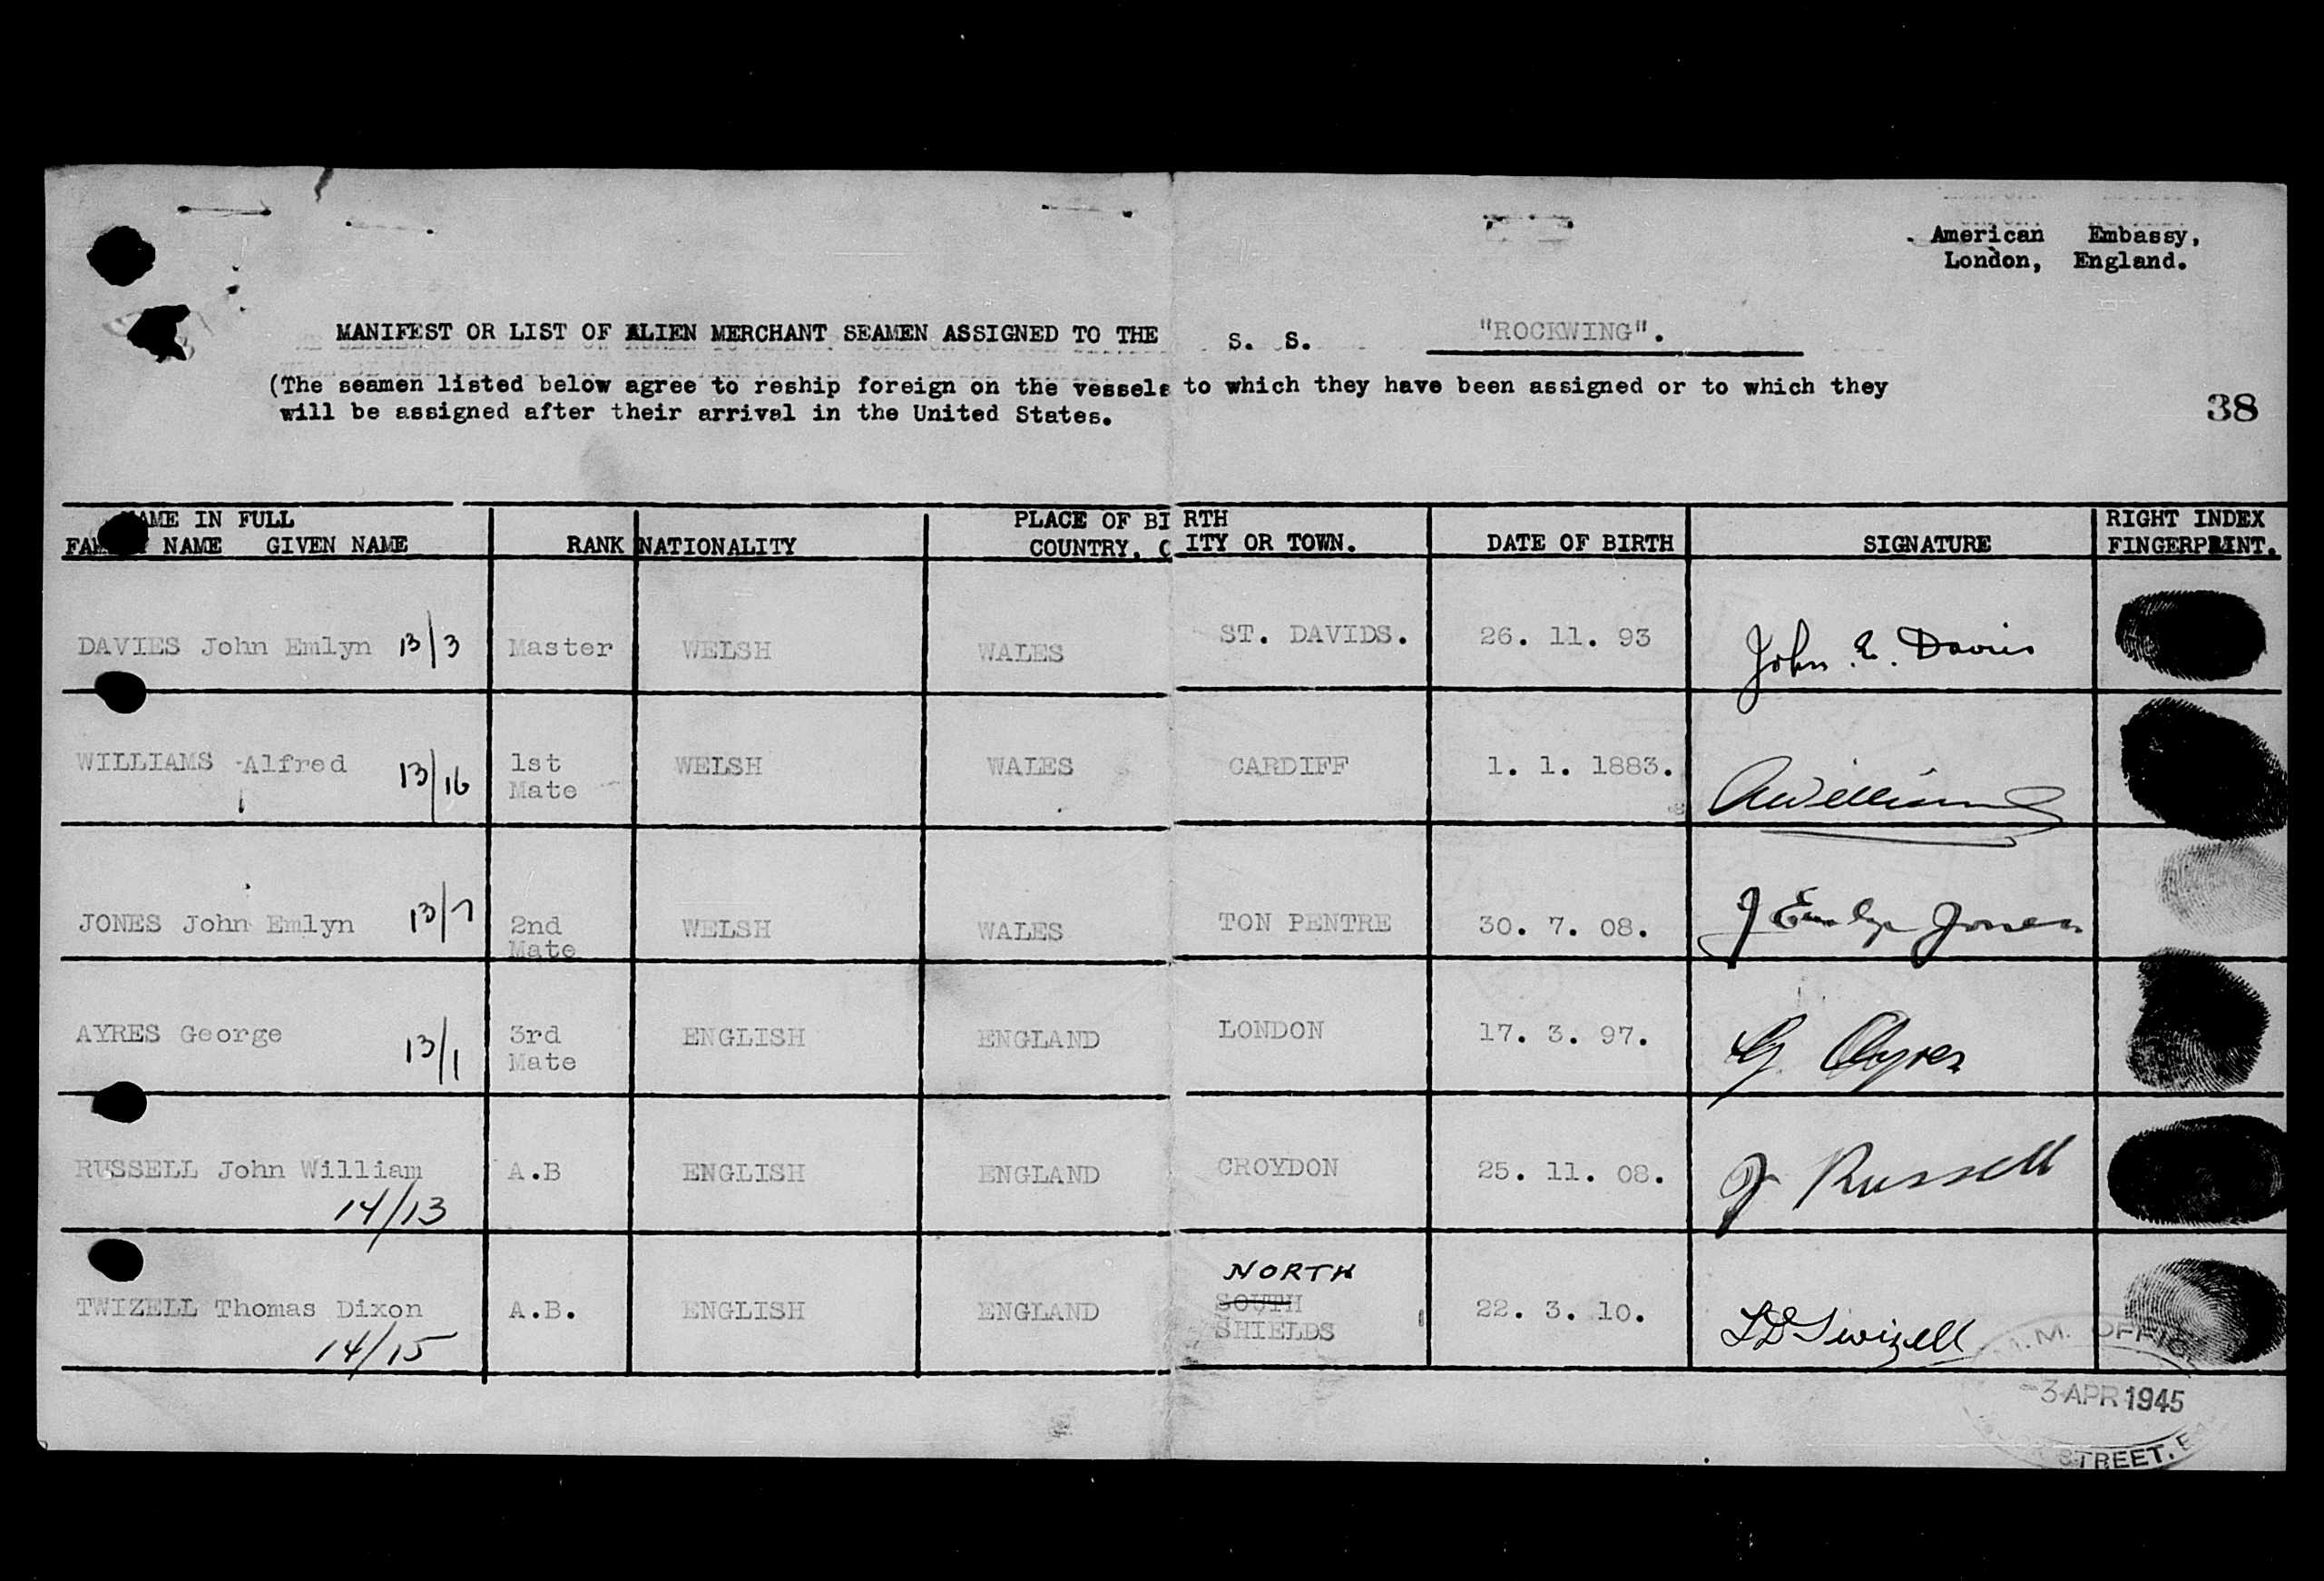 American Embassy,
London, England.
MANIFEST OR LIST OF ALIEN MERCHANT SEAMEN ASSIGNED TO THE S. S. "ROCKWING".
(The seamen listed below agree to reship foreign on the vessels to which they have been assigned or to which they
will be assigned after their arrival in the United States.
38
NAME IN FULL PLACE OF BIRTH RIGHT INDEX
FAMILY NAME GIVEN NAME RANK NATIONALITY COUNTRY, CITY OR TOWN. DATE OF BIRTH SIGNATURE FINGERPRINT.
DAVIES John Emlyn 13/3 Master WELSH WALES ST. DAVIDS. 26. 11. 93 John. E. Davies
WILLIAMS Alfred 13/16 1st WELSH WALES CARDIFF 1. 1. 1883. AWilliams
Mate
JONES John Emlyn 13/7 2nd WELSH WALES TON PENTRE 30. 7. 08. J Emlyn Jones
Mate
AYRES George 13/1 3rd ENGLISH ENGLAND LONDON 17. 3. 97. G. Ayres
Mate
RUSSELL John William A.B ENGLISH ENGLAND CROYDON 25. 11. 08. J Russell
14/13
NORTH
TWIZELL Thomas Dixon A.B. ENGLISH ENGLAND SOUTH 22. 3. 10. TD Twizell
SHIELDS
14/15
M.M. OFFICE
-3 APR 1945
STREET, E